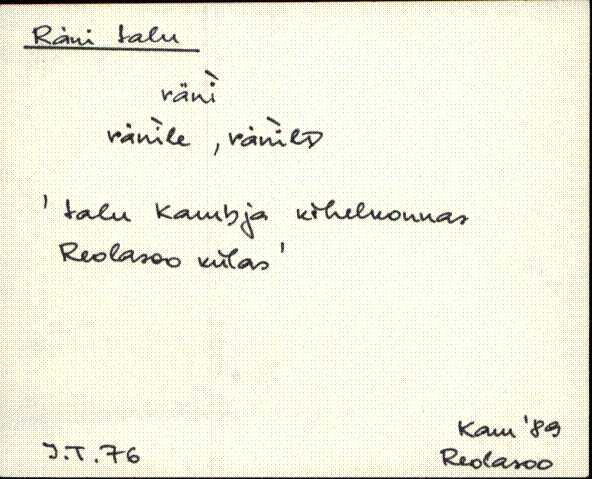 Räni talu
räǹi
räǹile, räǹilD
'talu Kambja kihelkonnas
Reolasoo külas'
J.T.76
Kam '89
Reolasoo